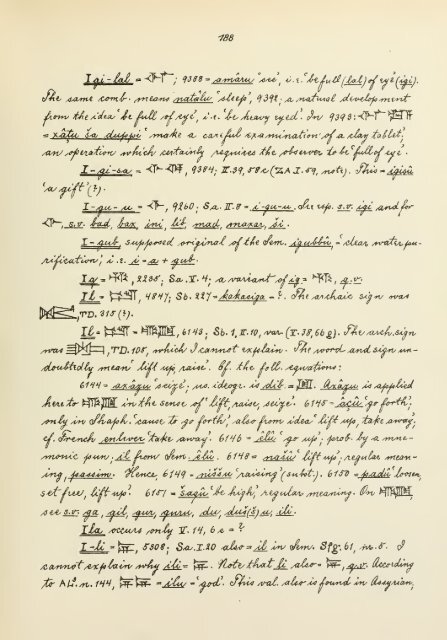 188
Igi-lal = 𒅆𒇲; 9388 = amâru 'see', i.e. 'be full (lal) of eye' (igi).
The same comb. means natâlu 'sleep', 9392; a natural development
from the idea 'be full of eye', i.e. 'be heavy eyed'. In 9393:
= xâṭu ša duppi 'make a careful examination of a clay tablet',
an operation which certainly requires the observer to be 'full of eye'.
I-gi-sa = 9384; II.39,58c (ZA I.59, note). This = igisû
'a gift' (?).
I-gu-u = 𒅆, 9260; Sa. II.8 = i-gu-u. See esp. s.v. igi and for
𒅆, s.v. bad, bax, ini, lib, mad, maxar, ši.
I-gub, supposed original of the Sem. igubbû, = 'clear water, pu-
rification', i.e. i = a + gub.
2235; Sa. V.4; a variant of ig = q.v.
Il = 4847; Sb. 227 = kakasiga = ?. The archaic sign was
TD. 315 (?).
Il = 6143; Sb. 1, II.10, var. (V.38,66g). The arch. sign
was TD. 108, which I cannot explain. The word and sign un-
doubtedly mean 'lift up, raise'. Cf. the foll. equations:
6144 = axâzu 'seize', us. ideogr. is dib = Axâzu is applied
here to in the sense of 'lift, raise, seize'. 6145 = âçû 'go forth',
only in Shaph. 'cause to go forth', also from idea 'lift up, take away',
cf. French enlever 'take away'. 6146 = êlû 'go up', prob. by a mne-
monic pun, il from Sem. êlû. 6148 = našû 'lift up'; regular mean-
ing, passim. Hence, 6149 = niššu 'raising' (subst.). 6150 = padû 'loosen,
set free, lift up'. 6151 = šaqû 'be high', regular meaning. On
see s.v. ga, gil, gur, guru, du, duš(š)u, ili.
Ila occurs only V.14, 6c = ?
I-li = 5308; Sa. I.20 also = il in Sem. Sfg. 61, nr. 5. I
cannot explain why ili = Note that li also = q.v. According
to AL³. n. 144, = ilu = 'god'. This val. also is found in Assyrian,